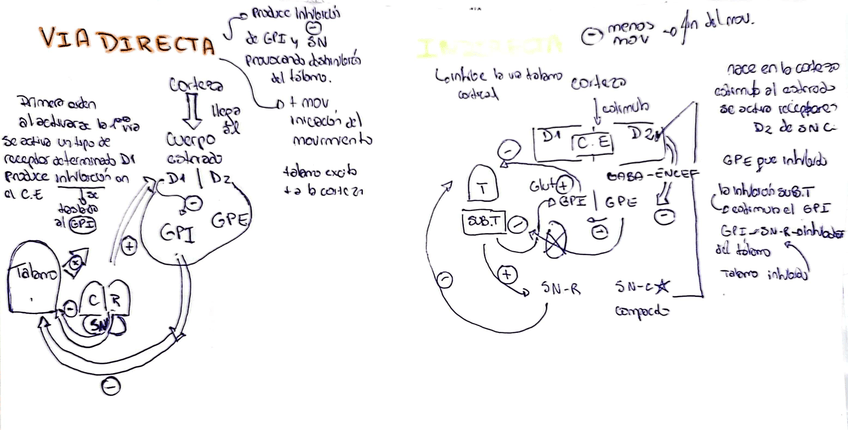 VIA DIRECTA
produce inhibición
⊖
de GPI y SN
provocando desinhibición
del tálamo.
+ mov
iniciación del
movimiento
talamo excita
+ a la corteza
Corteza
llega
al
Cuerpo
estriado
D1 | D2
⊖
GPI GPE
Primera orden
al activarse la 1ª via
se activa un tipo de
receptor determinado D1
produce inhibición en
el C.E
al GPI
⊕
Tálamo
⊖
C R
SN
⊖
INDIRECTA
⊖ menos
mov → fin del mov.
inhibe la via talamo
cortical
corteza
estimula
D1 C.E D2
⊖
T
Glut ⊕
GPI | GPE
GABA-ENCEF
SUB.T
⊖
⊖
⊖
⊕
⊖
SN-R SN-C
compacta
nace en la corteza
estimula al estriado
se activa receptores
D2 de SNC
GPE que inhibido
la inhibición SUB.T
estimula el GPI
GPI → SN-R → inhibidos
del tálamo
Talamo inhibido